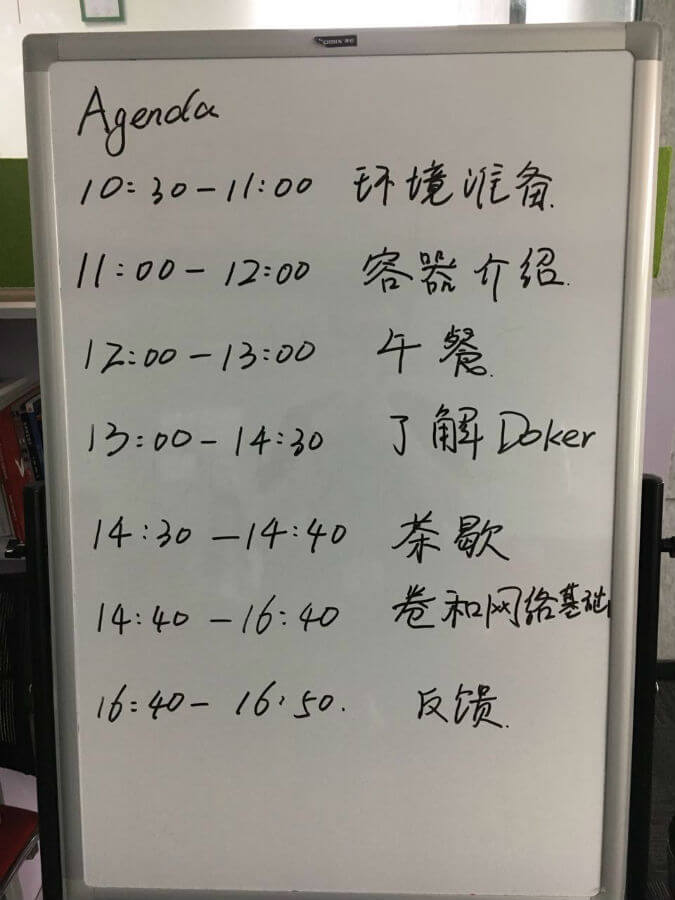 Agenda
10:30-11:00 环境准备.
11:00-12:00 容器介绍.
12:00-13:00 午餐.
13:00-14:30 了解Doker
14:30-14:40 茶歇
14:40-16:40 卷和网络基础
16:40-16:50. 反馈.